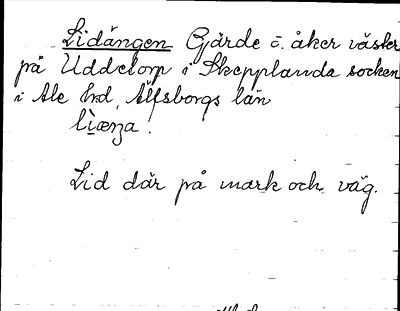 Lidängen Gjärde o. åker väster
på Uddetorp i Skepplanda socken
i Ale hd, Älfsborgs län
Lid där på mark och väg.